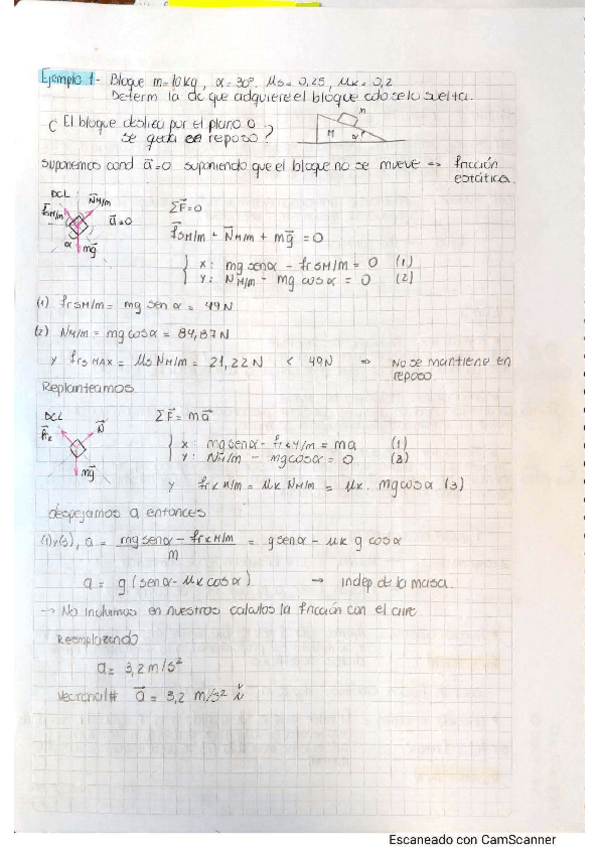 Ejemplo 1- Bloque m=10kg, α=30º. μs=0,25, μk=0,2
Determ la ac que adquiere el bloque cdo se lo suelta.
¿ El bloque desliza por el plano o
se queda en reposo?
m
M
α
suponemos cond a⃗=0 suponiendo que el bloque no se mueve => fricción
estática.
DCL
N⃗M/m
f⃗sM/m
a⃗=0
α
mg⃗
ΣF⃗=0
f⃗sM/m + N⃗M/m + mg⃗ = 0
x: mg senα - frsM/m = 0 (1)
y: NM/m - mg cosα = 0 (2)
(1) frsM/m = mg senα = 49N
(2) NM/m = mg cosα = 84,87N
y frsMAX = μs NM/m = 21,22N < 49N => No se mantiene en
reposo
Replanteamos
DCL
N⃗
mg⃗
ΣF⃗ = ma⃗
x: mg senα - frkM/m = ma (1)
y: NM/m - mg cosα = 0 (2)
y frkM/m = μk NM/m = μk. mg cosα (3)
despejamos a entonces
(1)y(3), a = mg senα - frkM/m / m = g senα - μk g cosα
a = g (senα - μk cosα) → indep de la masa.
→ No incluimos en nuestros calculos la fricción con el aire
Reemplazando
a= 3,2 m/s²
vectorial# a⃗ = 3,2 m/s²
Escaneado con CamScanner